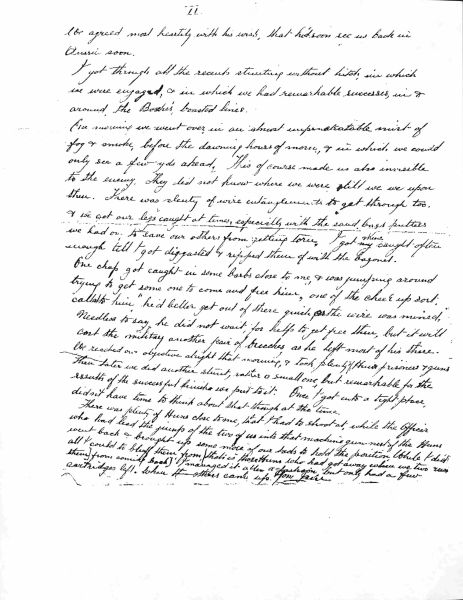 II.
We agreed most heartily with his wish, that he'd soon see us back in
soon.
I got through all the recent stunting without hitch in which
we were engaged, & in which we had remarkable successes, in &
around the Boches boasted lines.
One morning we went over in an almost impenetrable mist of
fog & smoke, before the dawning hours of morn, & in which we could
only see a few yds ahead. This of course made us also invisible
to the enemy. They did not know where we were till we were upon
them. There was plenty of wire entanglements to get through too.
& we got our legs caught at times, especially with the sand bags putties
we had on to save our others from getting torn. I got mine caught often
enough till I got disgusted & ripped them off with the bayonet.
One chap got caught in some barbs close to me, & was jumping around
trying to get some one to come and free him, one of the cheer up sort,
called to him "he'd better get out of there quick as the wire was mined,"
Needless to say he did not wait for help to get free then, but it will
cost the military another pair of breeches as he left most of his there.
We reached our objective alright that morning, & took plenty of prisoners & guns
Then later we did another stunt, rather a small one, but remarkable for the
results of the successful finish we put to it. Once I got into a tight place
didn't have time to think about that though at the time.
There was plenty of Huns close to me, that I had to shoot at, while the Officer
who had lead the jump of the two of us into that machine gun nest of the Huns
went back & brought up some more of our lads to hold the position. While I did
all I could to them from (that is those Huns who had got away when we two
them from coming back) I managed it after a fashion but only had a few
cartridges left when the others came up.